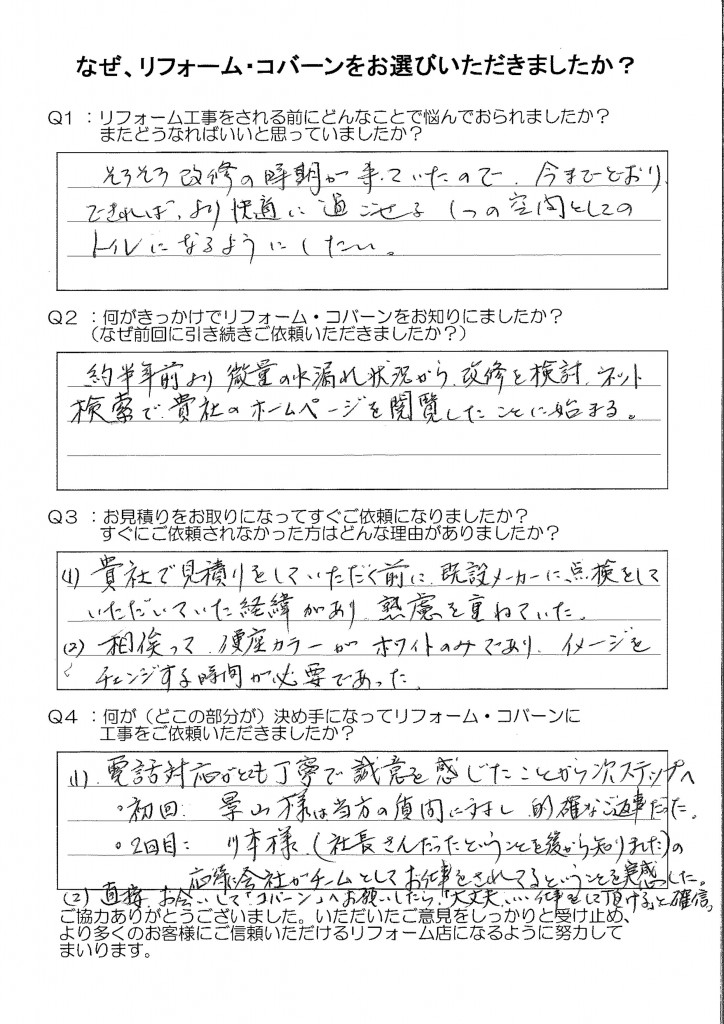 なぜ、リフォーム・コバーンをお選びいただきましたか？
Q1 ：リフォーム工事をされる前にどんなことで悩んでおられましたか？
またどうなればいいと思っていましたか？
そろそろ改修の時期が来ていたので、今までどおり、
できれば、より快適に過ごせる 1つの空間としての
トイレになるようにしたい。
Q2 ：何がきっかけでリフォーム・コバーンをお知りにましたか？
（なぜ前回に引き続きご依頼いただきましたか？）
約半年前より微量の水漏れ状況から、改修を検討、ネット
検索で貴社のホームページを閲覧したことに始まる。
Q3 ：お見積りをお取りになってすぐご依頼になりましたか？
すぐにご依頼されなかった方はどんな理由がありましたか？
(1) 貴社で見積りをしていただく前に、既設メーカーに点検をして
いただいていた経緯があり、熟慮を重ねていた。
(2) 相俟って、便座カラーがホワイトのみであり、イメージを
チェンジする時間が必要であった。
Q4 ：何が（どこの部分が）決め手になってリフォーム・コバーンに
工事をご依頼いただきましたか？
(1). 電話対応がとても丁寧で誠意を感じたことから次ステップへ
◦初回: 景山様は当方の質問に対し 的確なご返事だった。
◦2回目: 川本様、(社長さんだったということを後から知りました)の
応対に会社がチームとしてお仕事をされてるということを実感した。
(2) 直接、お会いして「コバーン」へお願いしたら、"大丈夫…仕事をして頂ける"と確信。
ご協力ありがとうございました。いただいたご意見をしっかりと受け止め、
より多くのお客様にご信頼いただけるリフォーム店になるように努力して
まいります。